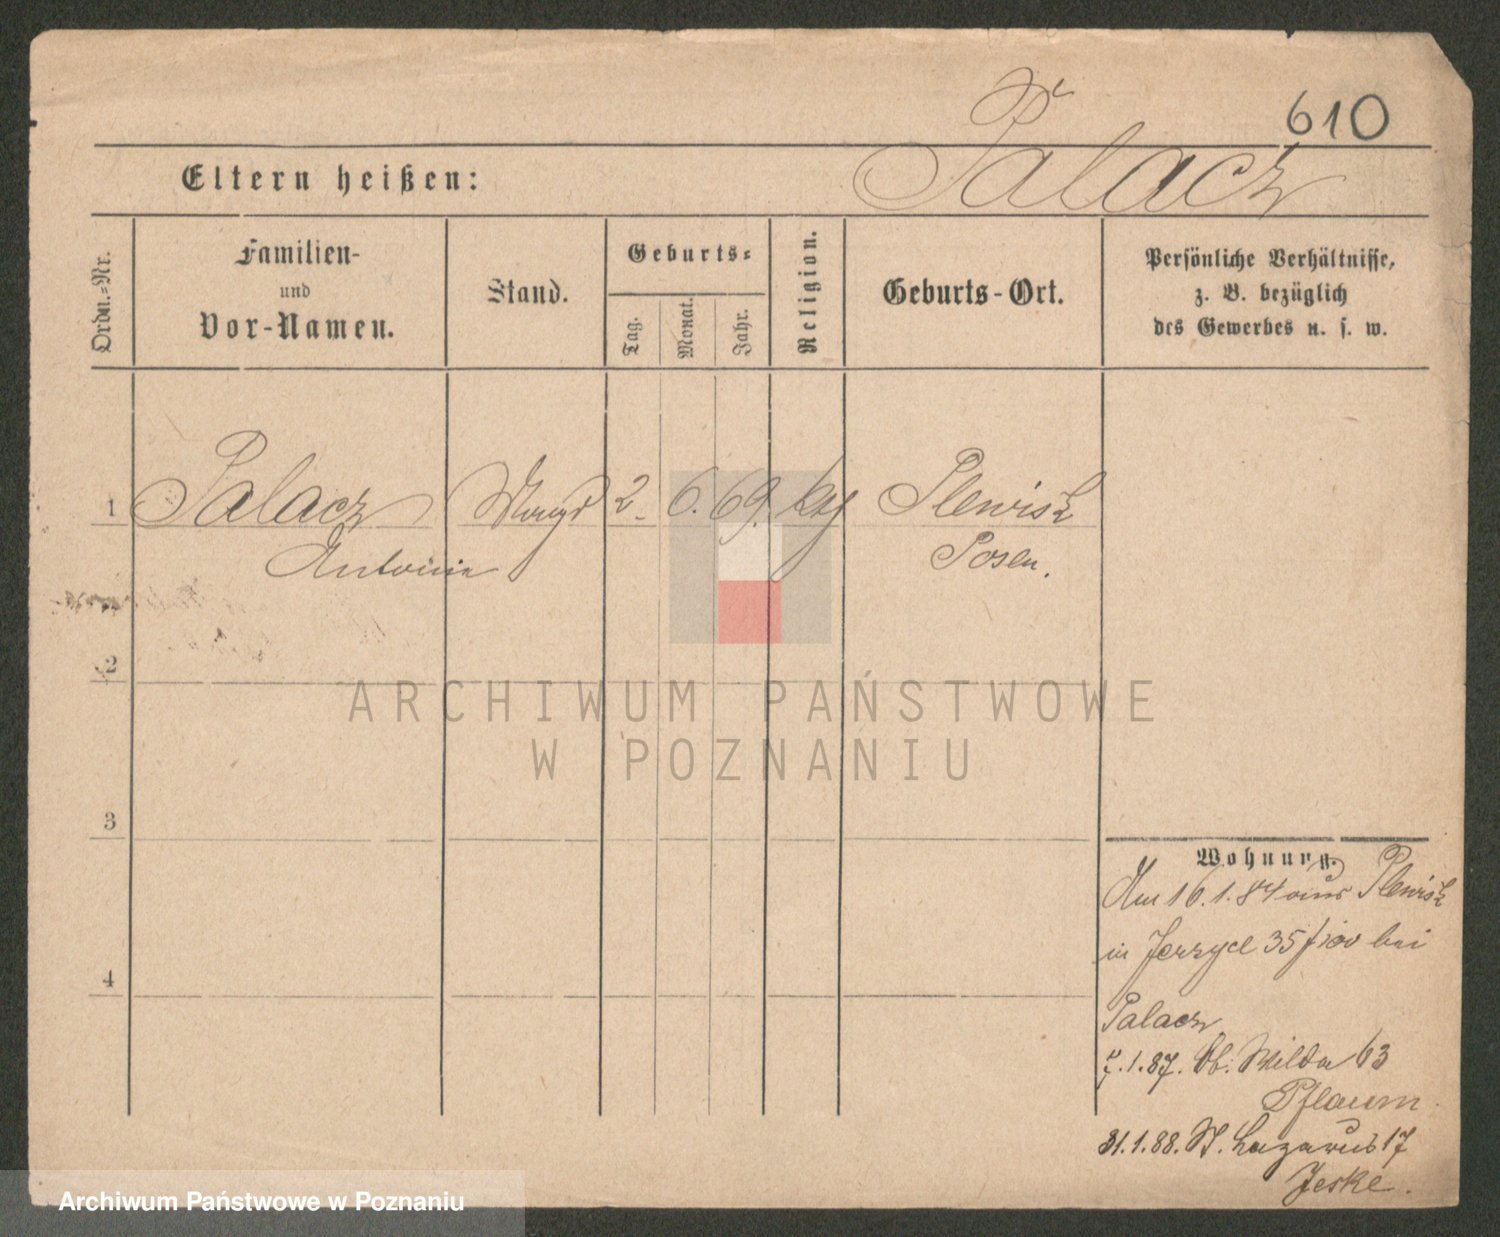 610
Palacz
Eltern heißen:
Ordn.-Nr.
Familien-
und
Vor-Namen.
Stand.
Geburts-
Tag.
Monat.
Jahr.
Religion.
Geburts-Ort.
Persönliche Verhältnisse,
z. B. bezüglich
des Gewerbes u. s. w.
1 Palacz Magd 2. 6. 69. kth Plewisk
Antonie Posen.
2
3
4
Wohnung.
Am 16.1.84 aus Plewisk
in Jerzyce 35 bei
Palacz
7.1.87. Ob. Wilda 63
Pflaum.
31.1.88. St. Lazarus 17
Jeske.
ARCHIWUM PAŃSTWOWE
W POZNANIU
Archiwum Państwowe w Poznaniu